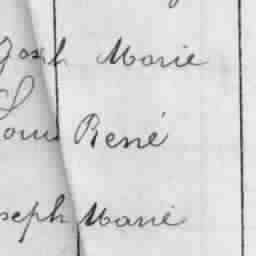 Josph Marie
Louis René
oseph Marie